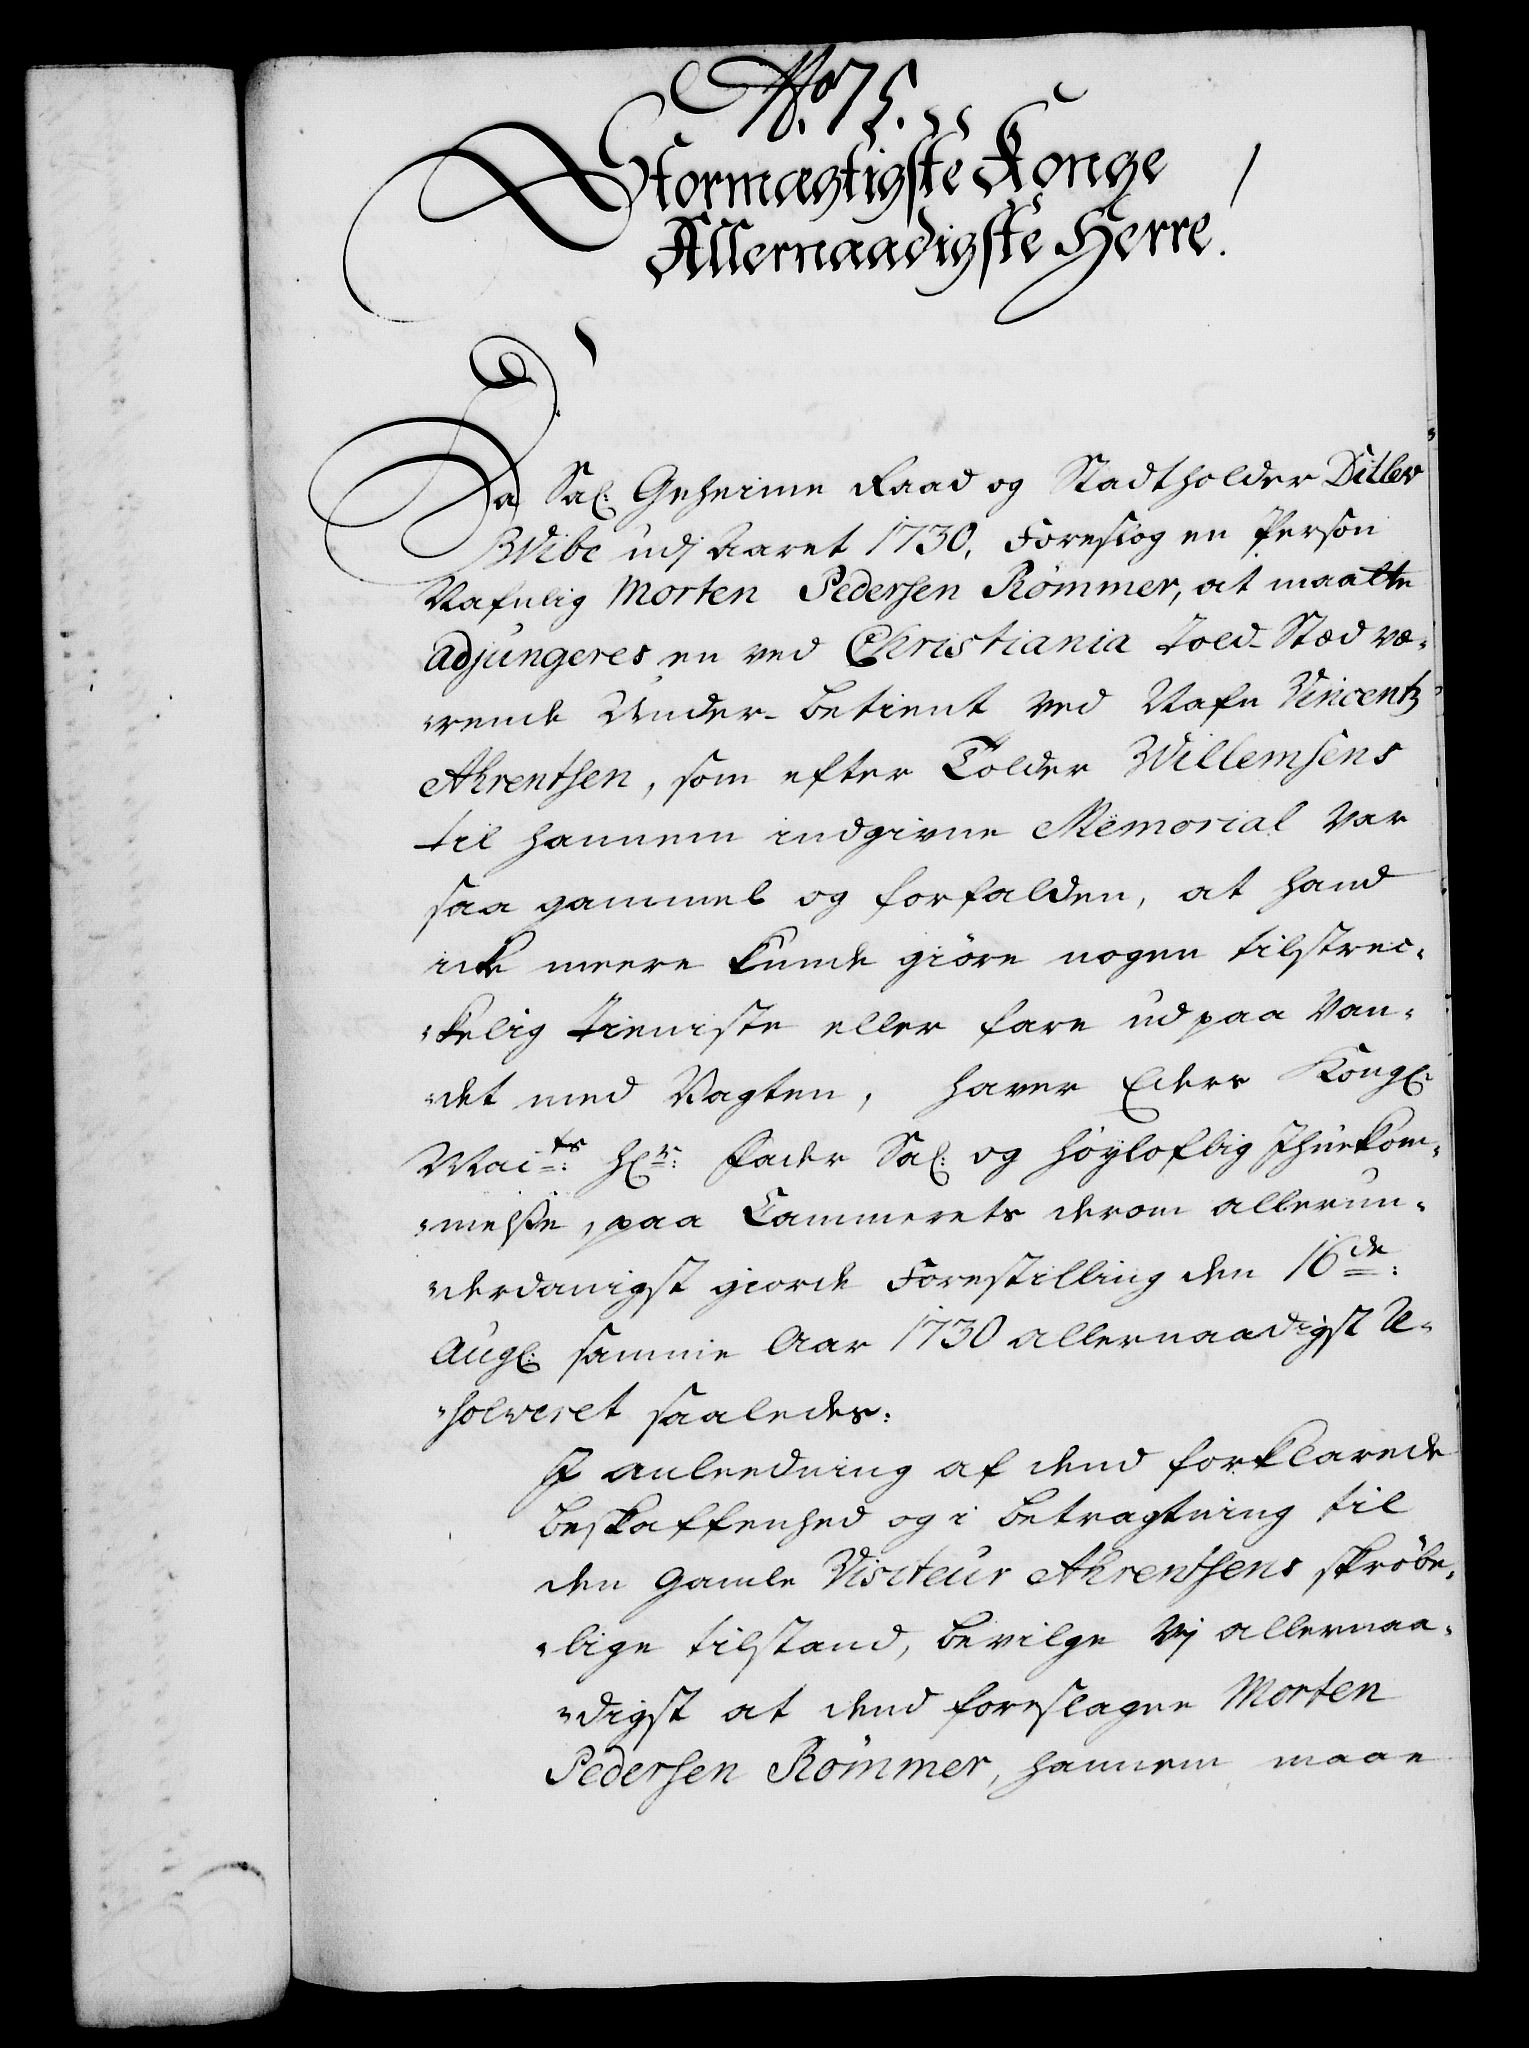 No 75.
Stormægtigste Konge
Allernaadigste Herre!
Da Sal: Geheime Raad og Stadtholder Ditlev
Wibe udj Aaret 1730, Foreslog en Person
Nafnlig Morten Pedersen Römmer, at maatte
adjungeres en ved Christiania Told-Stæd væ-
-rende Under-betient ved Nafn Vincentz
Ahrentsen, som efter Tolder Willemsens
til hannem indgivne Memorial var
saa gammel og forfalden, at hand
ick meere kunde giöre nogen tilstrec-
-kelig tieniste eller fare ud paa Van-
-det med Vagten, haver Eders Kongl:
Maits: Hr: Fader Sal: og Höyloflig Ihukom-
-melse, paa Cammerets derom allerun-
-derdanigst giorde Forestilling den 16de:
Augl: samme Aar 1730 allernaadigst re-
-solveret saaledes:
I anleedning af dend forklarede
beskaffenhed og i betragtning til
den gamle Visiteur Ahrentsens skröbe-
-lige tilstand, bevilge Vj allernaa-
-digst at dend foreslagne Morten
Pedersen Römmer, hannem maae